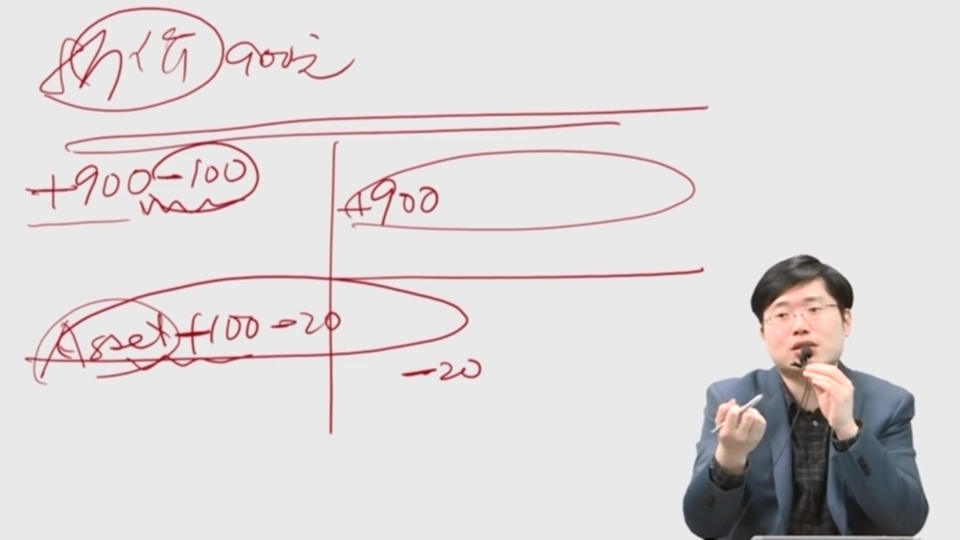 900
+900-100
+900
Asset +100-20
-20